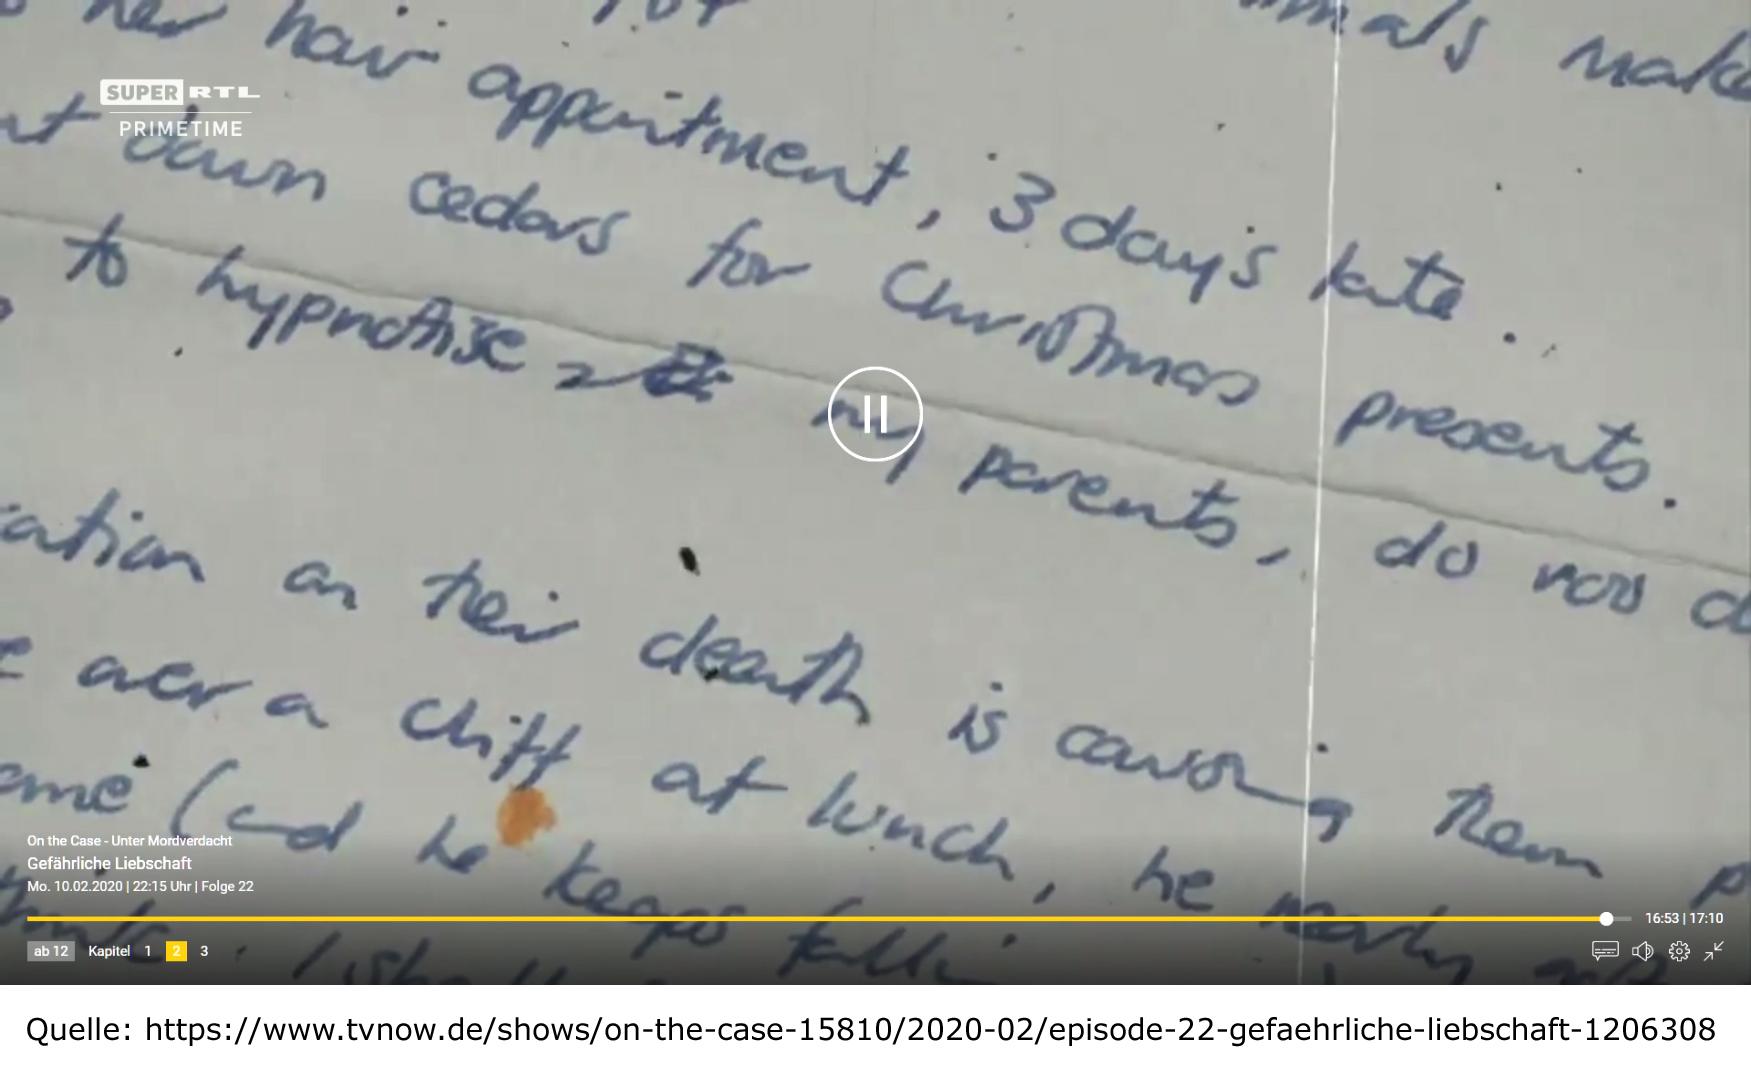 her hair appointment, 3 days late.
SUPER RTL
PRIMETIME
down cedars for Christmas presents.
to hypnotise my parents, do
on their death is causing them
over a cliff at lunch, he nearly
(and he keeps
On the Case - Unter Mordverdacht
Gefährliche Liebschaft
Mo. 10.02.2020 | 22:15 Uhr | Folge 22
16:53 | 17:10
ab 12 Kapitel 1 2 3
Quelle: https://www.tvnow.de/shows/on-the-case-15810/2020-02/episode-22-gefaehrliche-liebschaft-1206308